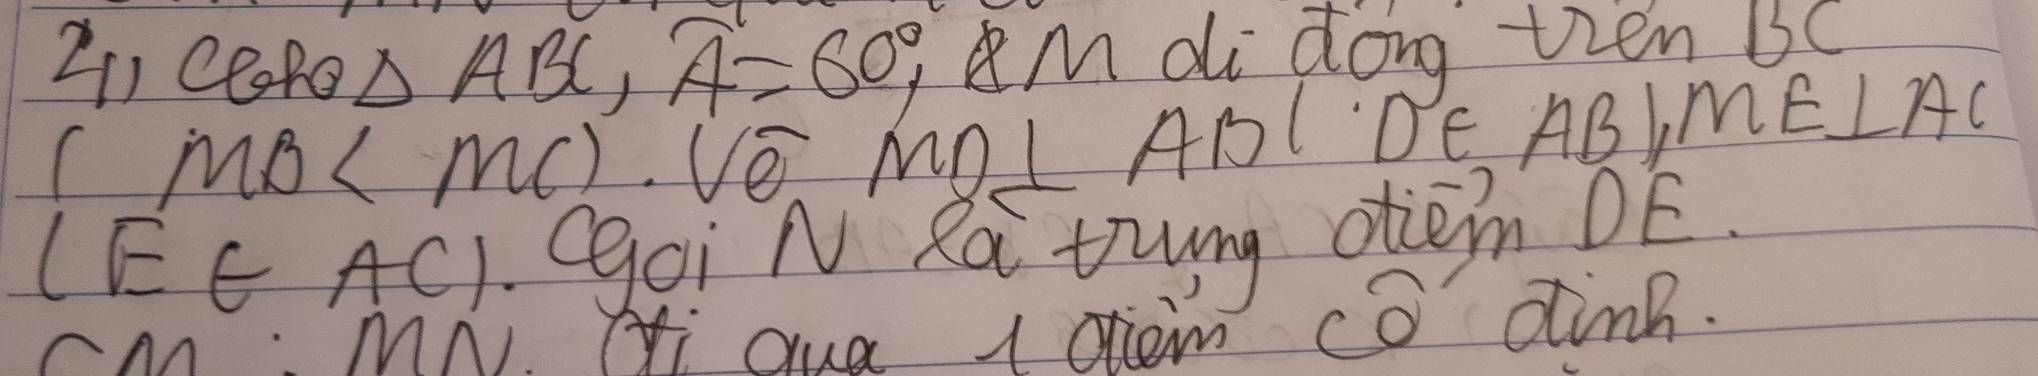 2,, Cho Δ ABC, Â = 60°; M di động trên BC
( MB < MC). Vẽ MD ⊥ AB ( D ∈ AB), ME ⊥ AC
(E ∈ AC). Gọi N là trung điểm DE.
CM: MN. Đi qua 1 điểm cố định.